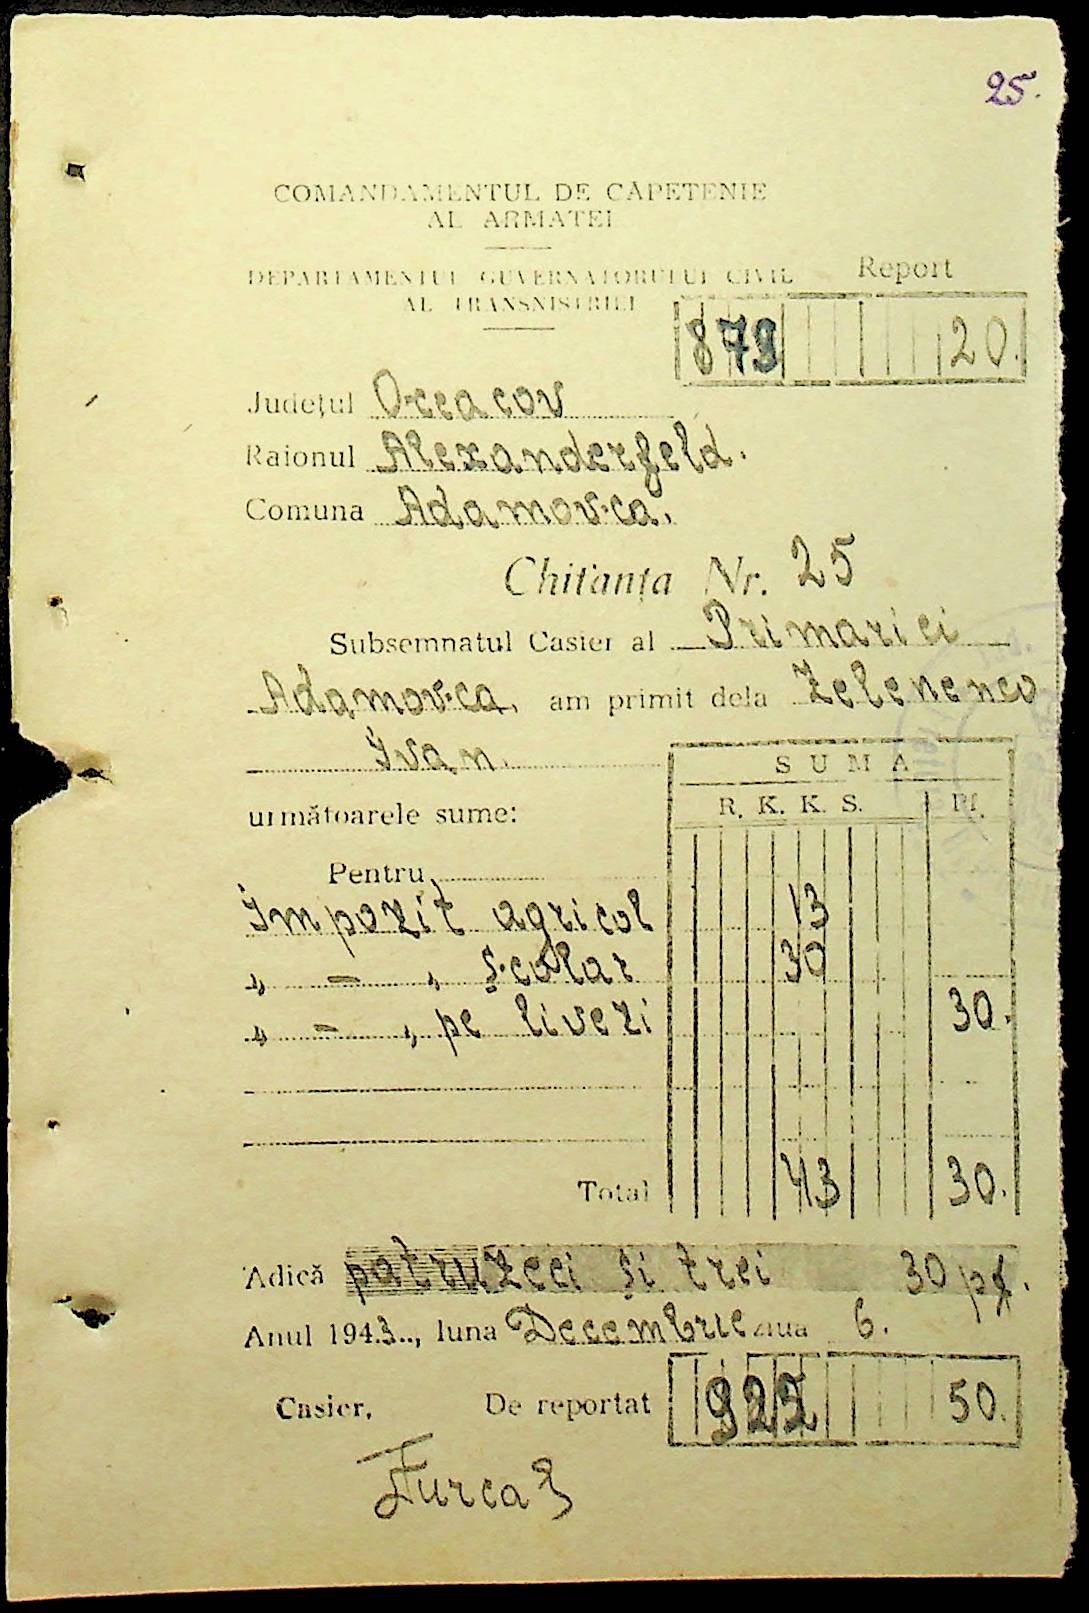 25.
COMANDAMENTUL DE CAPETENIE
AL ARMATEI
DEPARTAMENTUL GUVERNATORULUI CIVIL
AL TRANSNISTRIEI
Report
879 20.
Județul Oceacov
Raionul Alexanderfeld.
Comuna Adamovca.
Chitanța Nr. 25
Subsemnatul Casier al Primariei
Adamovca, am primit dela Zelenenco
Ivan.
SUMA
R. K. K. S. Pf.
următoarele sume:
Pentru
Impozit agricol 13
„ — „ școlar 30
„ — „ pe livezi 30.
Total 43 30.
Adică patruzeci și trei 30 pf.
Anul 1943.., luna Decembrie ziua 6.
Casier, De reportat 922 50.